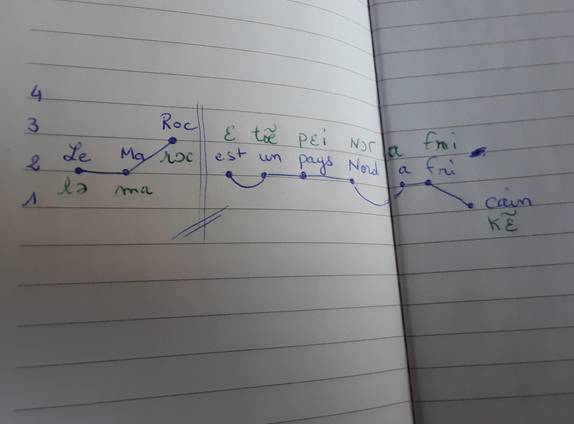 4
3 Roc
ɛ tœ̃ pɛi nɔr a fri
2 Le Ma rɔc est un pays Nord a fri
lə ma
1 cain
kɛ̃